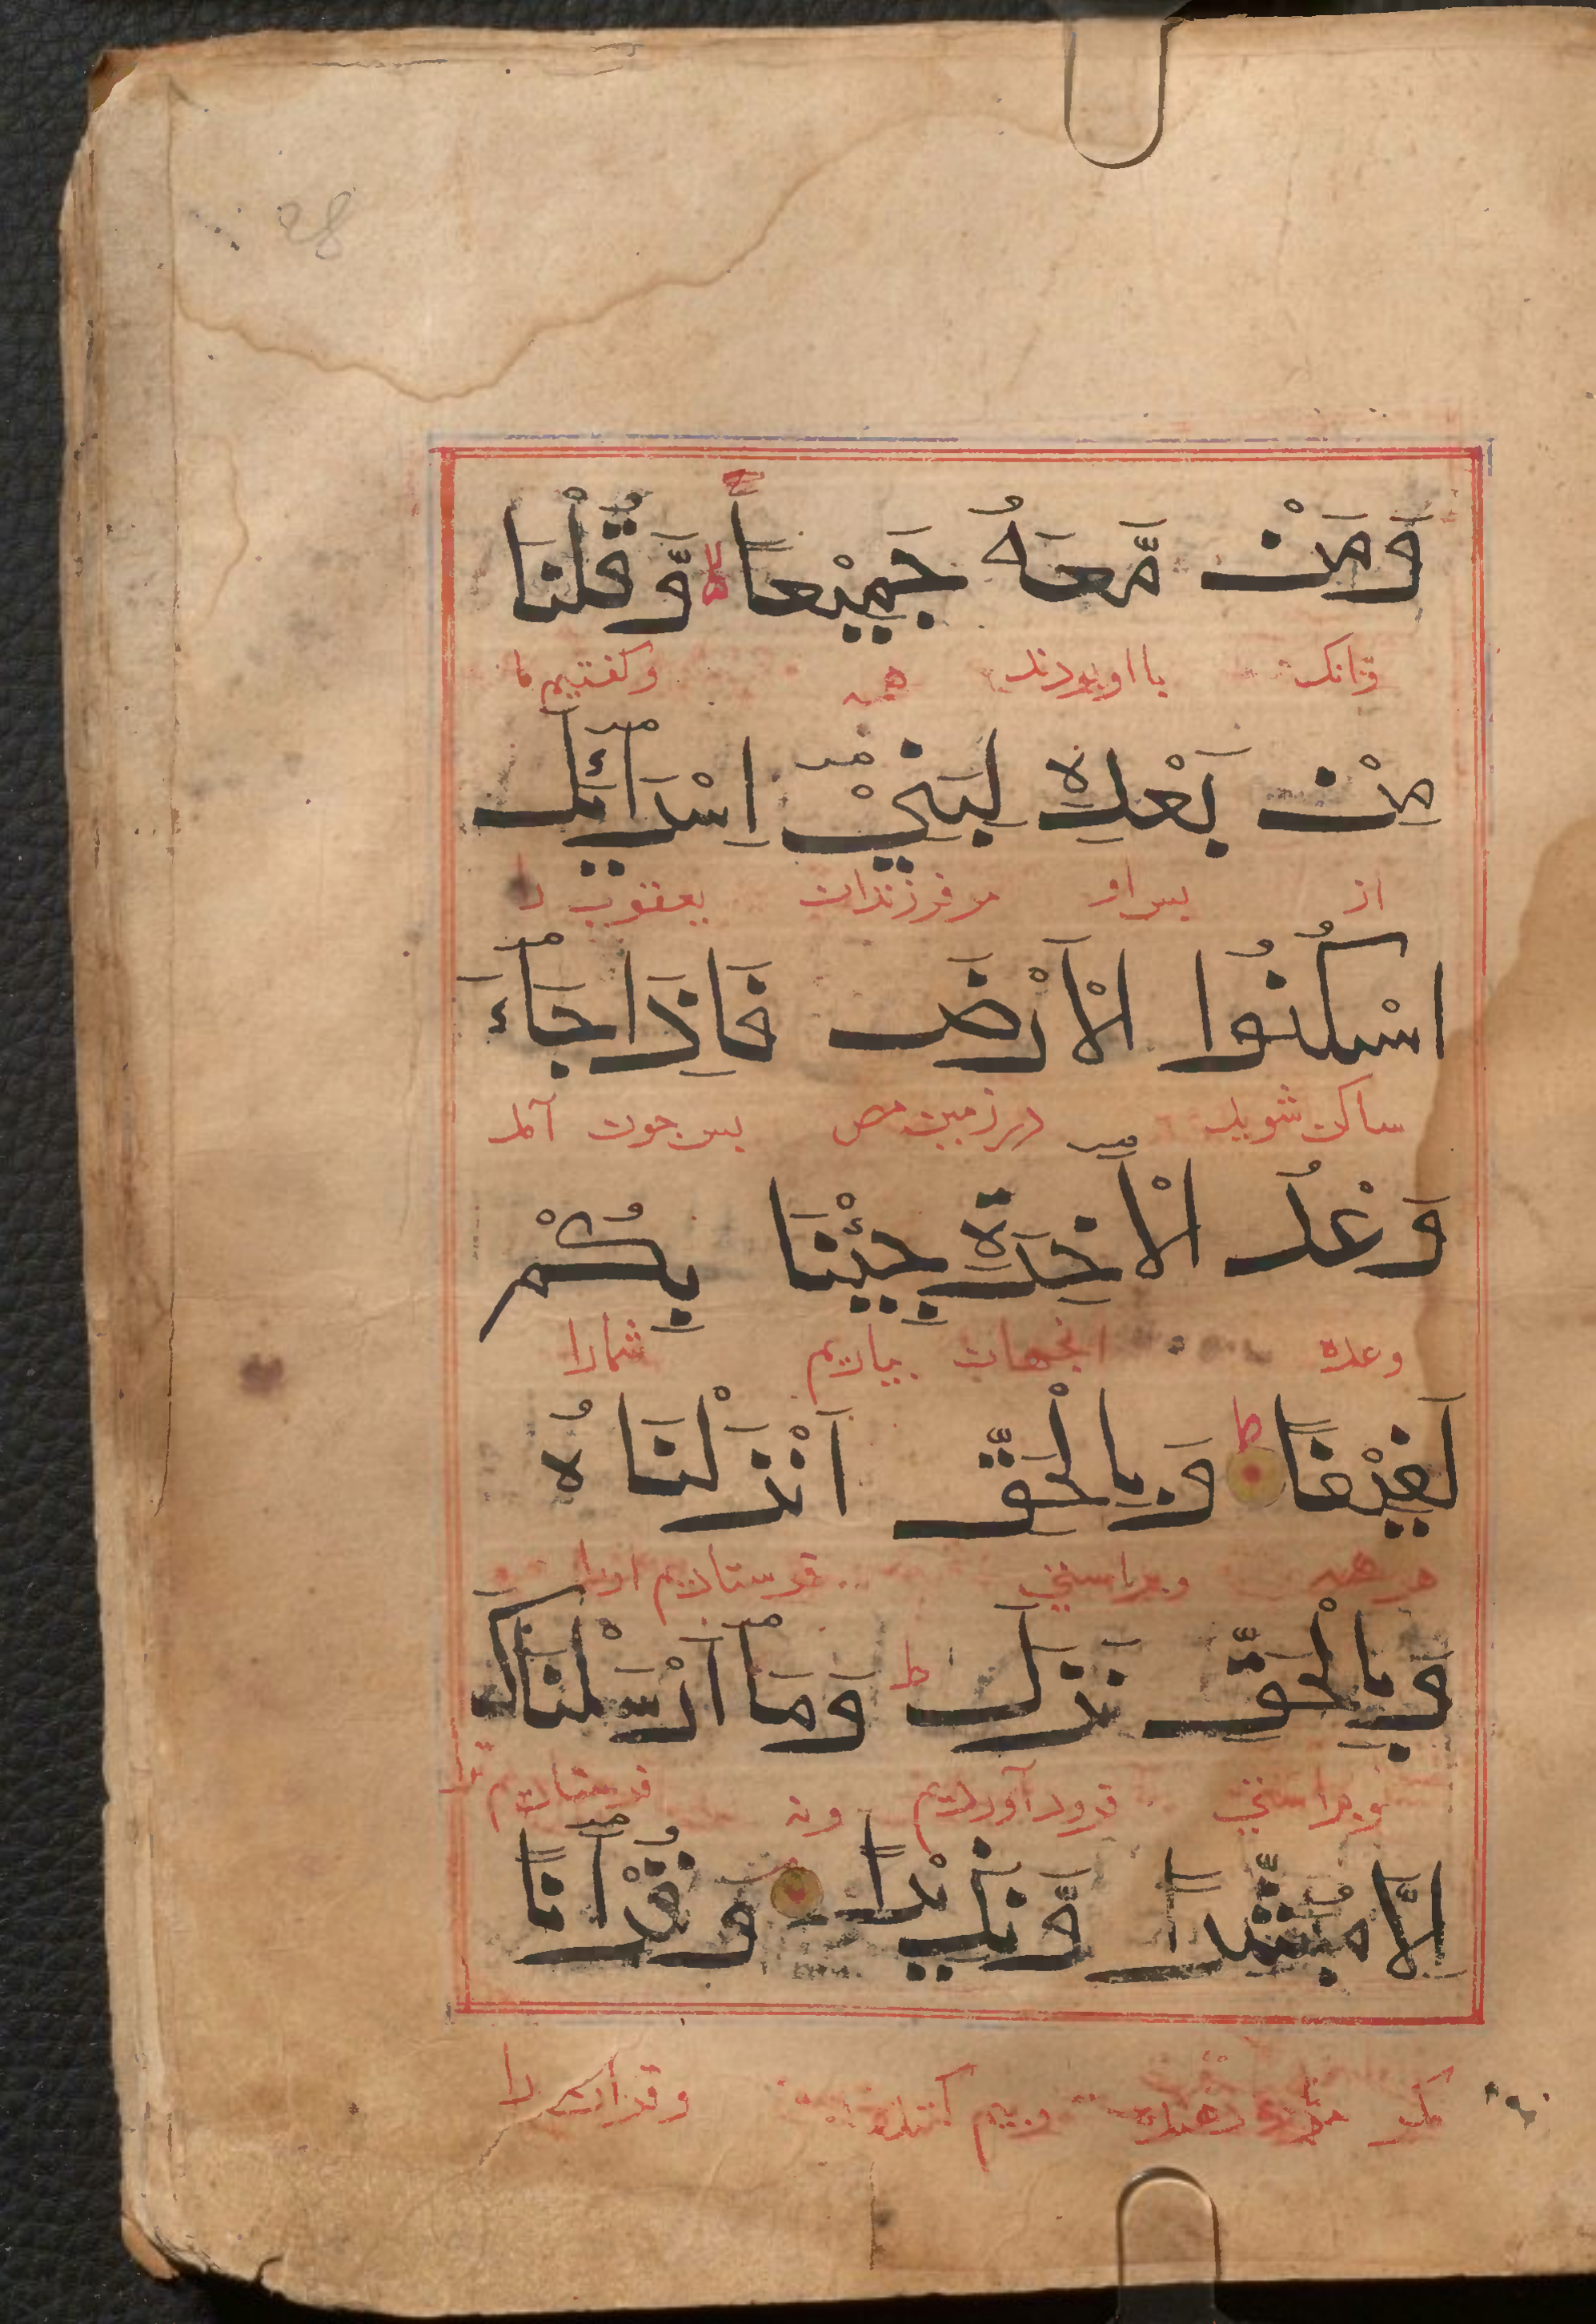 وَمَنْ مَّعَهُ جَمِيْعاً لا وَّقُلْنَا
وآنک با او بودند همه وکفتیم ما
مِنْ بَعْدِهٖ لِبَنِيْٓ اِسْرَآئِيْلَ
از پس او مر فرزندان یعقوب را
اسْكُنُوا الْاَرْضَ فَاِذَا جَآءَ
ساکن شوید در زمین مصر پس چون آمد
وَعْدُ الْاٰخِرَةِ جِيْئْنَا بِكُمْ
وعده انجهان بیاریم شمارا
لَفِيْفًا ط وَبِالْحَقِّ اَنْزَلْنَاهُ
همه وبراستی فرستادیم اورا
وَبِالْحَقِّ نَزَلَ ط وَمَآ اَرْسَلْنَاكَ
وبراستی فرود آوردیم ونه فرستادیم ترا
اِلَّا مُبَشِّرًا وَّنَذِيْرًا وَقُرْاٰنًا
مکر مژده دهنده وبیم کننده وقران را